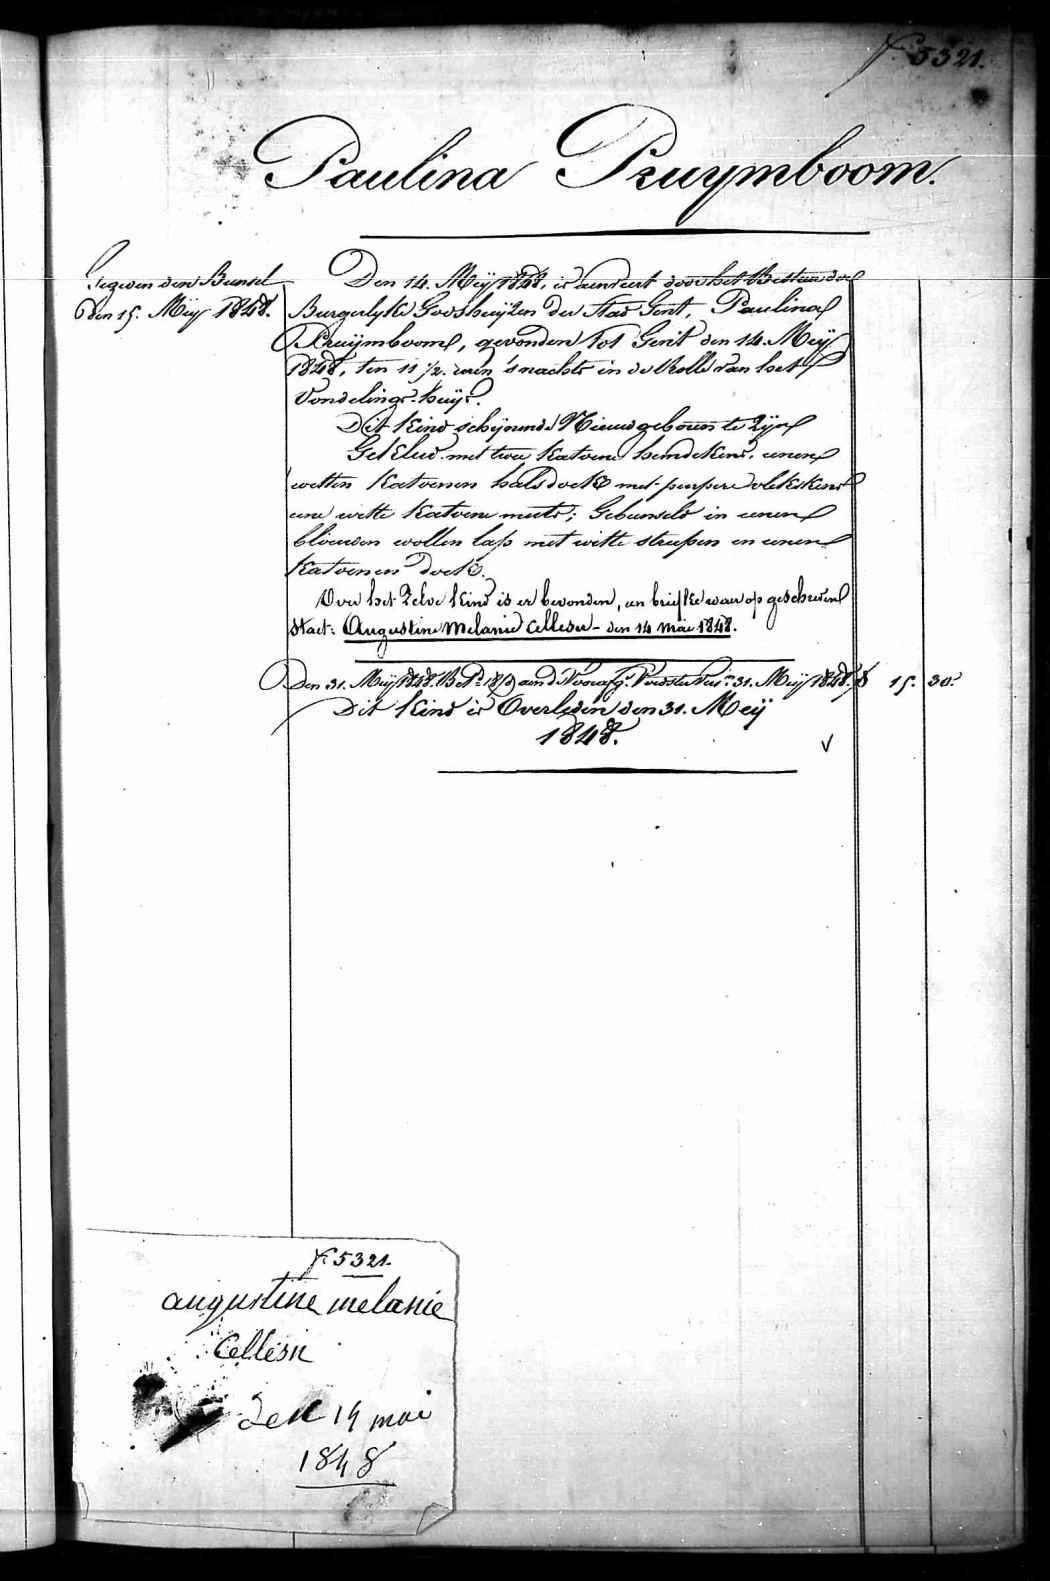 f° 5321.
Paulina Pruymboom.
Gegeven den Bunsel
den 15. Mey 1848.
Den 14. Meÿ 1848, is aenveert door het Bestuer der
Burgerlyke Godshuÿzen der stad Gent, Paulina
Pruÿmboom, gevonden tot Gent den 14. Meÿ
1848, ten 11 1/2. uren 's nachts in de Rolle van het
Vondelings-huÿs.
Dit kind scheynende Nieuwgeboren te zÿn
Gekleed met twee katoene hemdekens, eenen
witten katoenen halsdoek met purpere vlekskens
eene witte katoene muts; Gebunseld in eenen
blauwen wollen lap met witte streepen en eenen
katoenen doek.
Over het zelve kind is er bevonden, en briefke waer op geschreven
staet: Augustine Melanie Cellesn - den 14 mai 1848.
Den 31. Meÿ 1848. 31. Meÿ 1848. 15. 30.
Dit kind is Overleden den 31. Meÿ
1848.
f° 5321.
augustine melanie
Cellesn
den 14 mai
1848